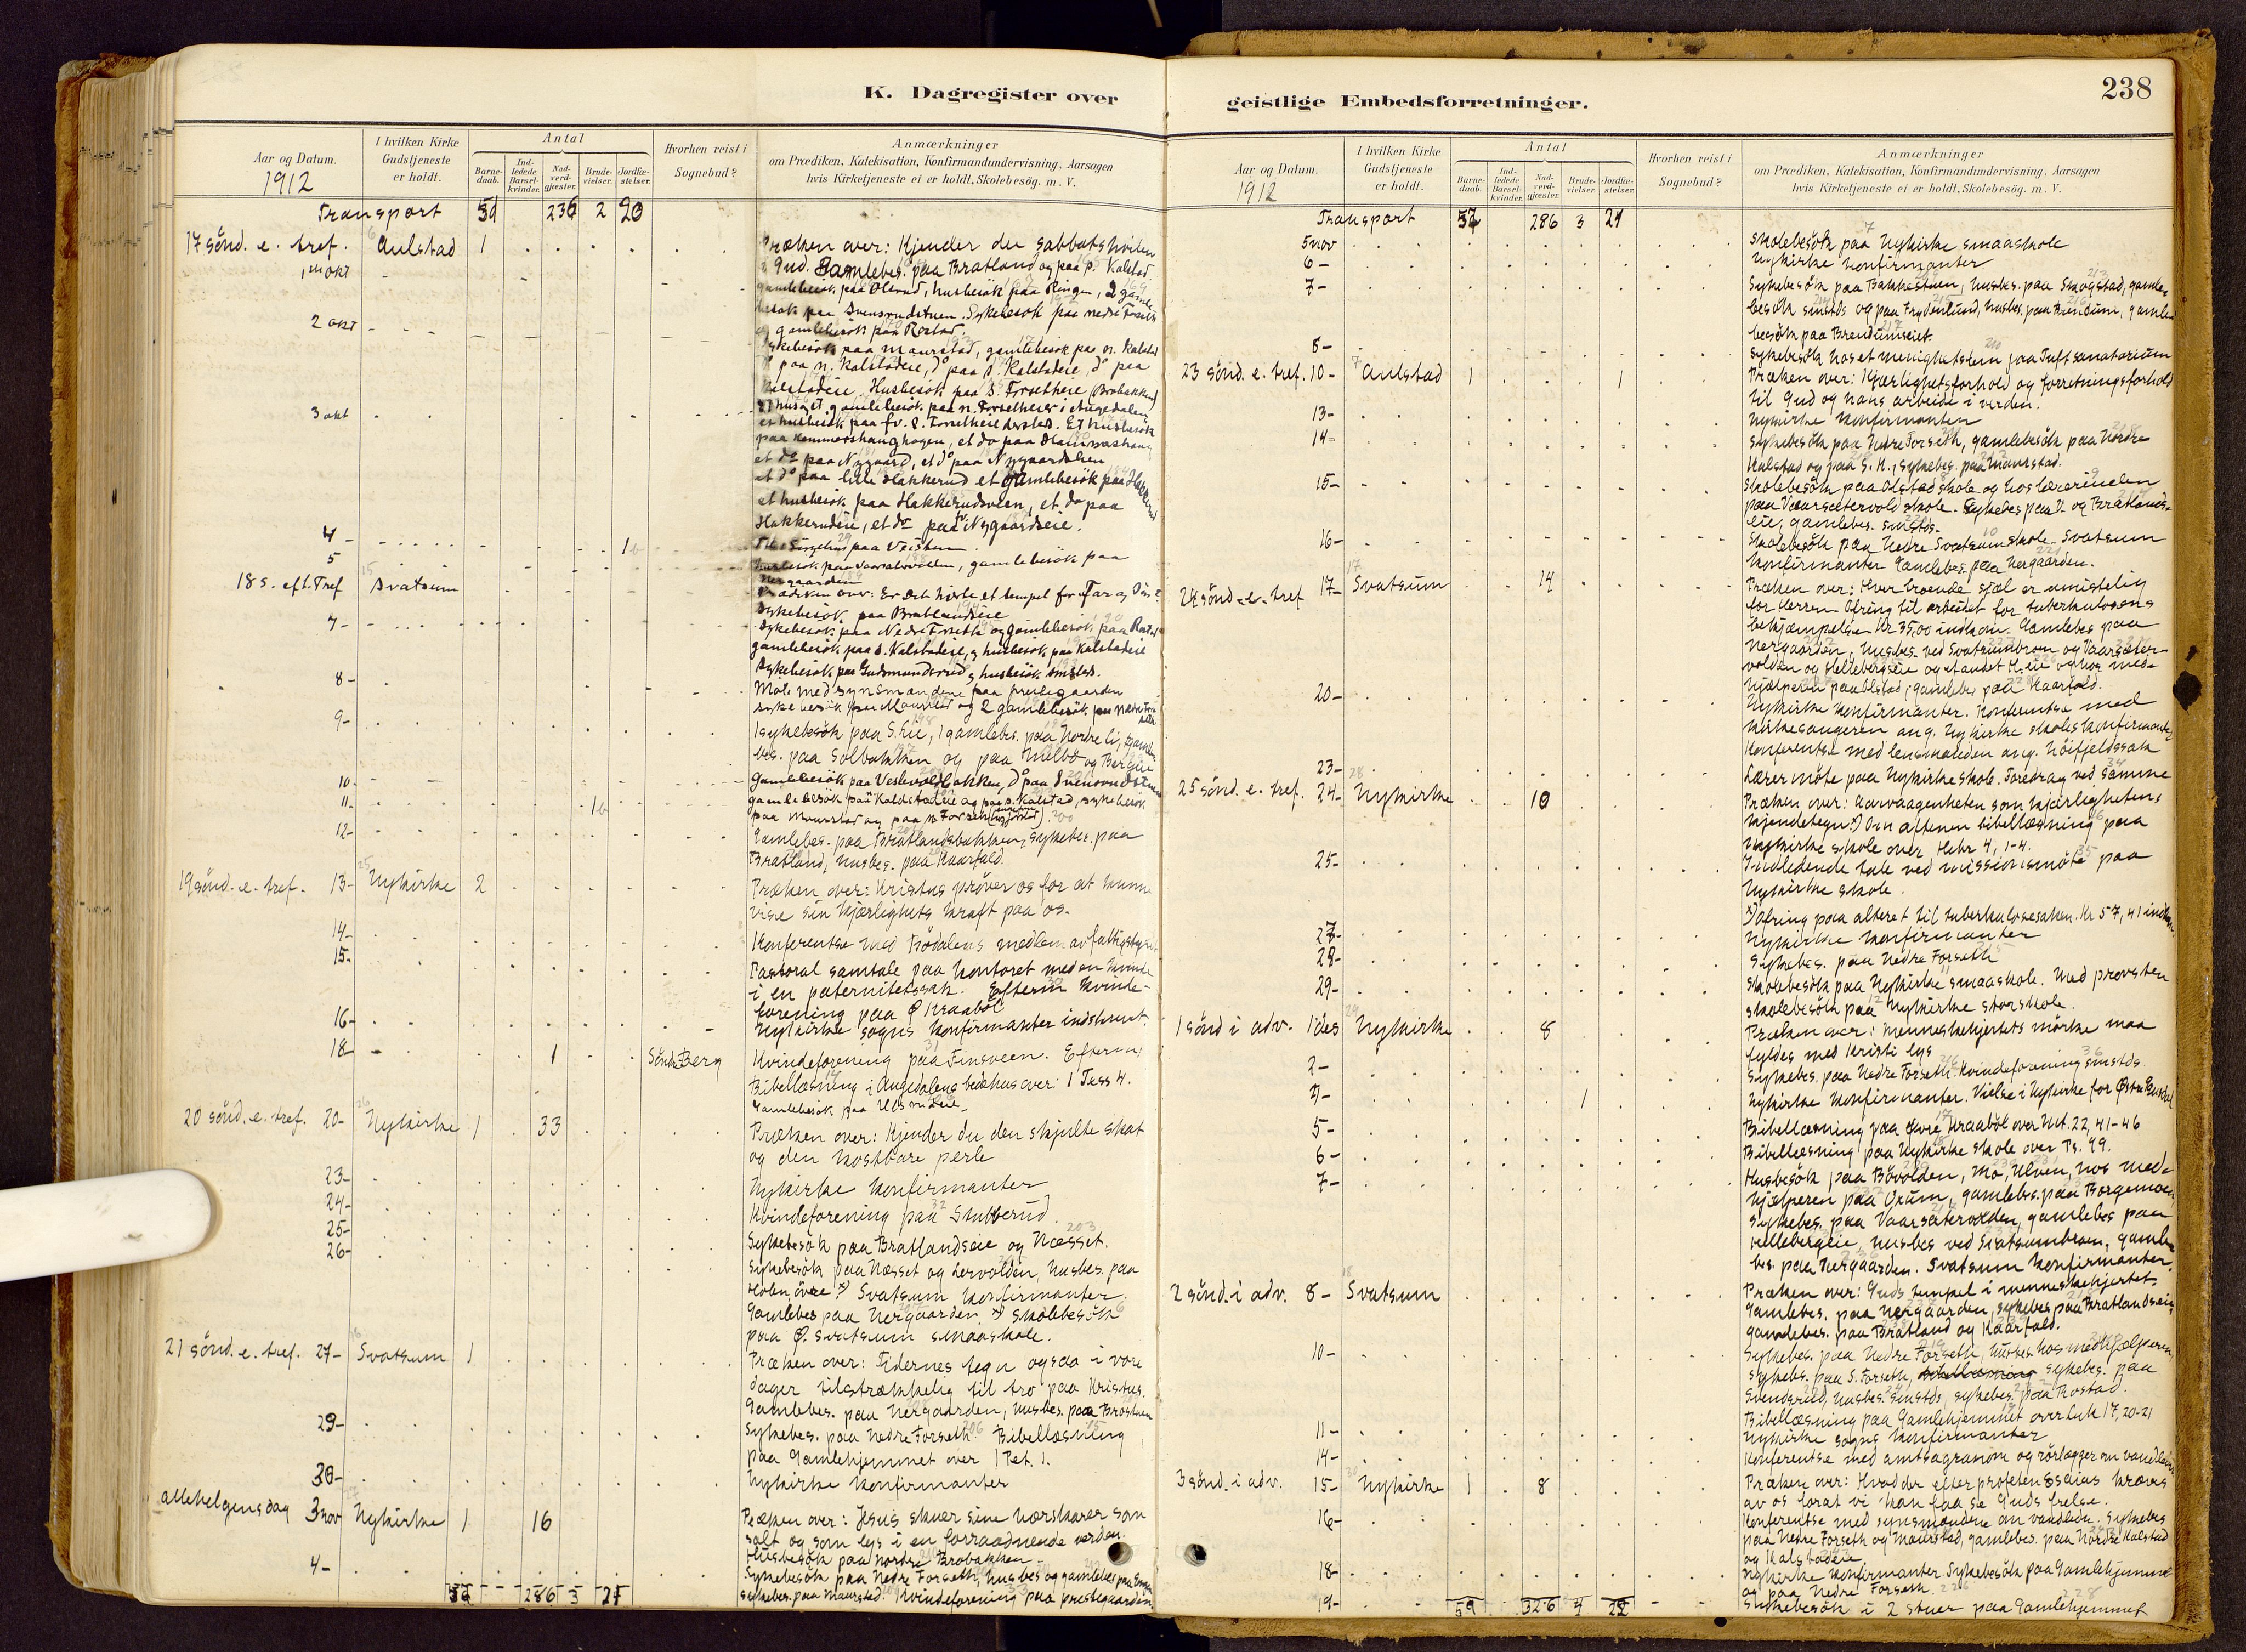 K. Dagregister over
Aar og Datum.
1912
I hvilken Kirke Gudstjeneste er holdt.
Antal
Barnedaab. Indledede Barselkvinder. Nadverdgjester. Brudevielser. Jordfæstelser.
Hvorhen reist i Sognebud?
Anmærkninger
om Prædiken, Katekisation, Konfirmandundervisning, Aarsagen
hvis Kirketjeneste ei er holdt, Skolebesög. m. V.
Transport 51 236 2 20
17 sönd. e. tref. Aulstad 1 Præken over: Kjender du sabbatshvilen
i Gud. Gamlebes. paa Bratland og paa s. Kalstad
1 okt gamlebesök paa Olsrud, husbesök paa Ringen, 2 gamle
besök paa Svensrudstuen. Sykebesök paa nedre Forseth
2 okt og gamlebesök paa Rostad.
Sykebesök paa Maurstad, gamlebesök paa n. Kalstad
do paa n. Kalstadeie, do paa s. Kalstadeie, do paa
Kalstadeie. Husbesök paa S. Forsetheie (Brobakken)
3 okt
paa Hammershaughagen, et do paa Hammershaug
et do paa Nygaard, et do paa Nygaardslien
et do paa lille Hakkerud et gamlebesök paa Hakkerud
et husbesök paa Hakkerudsveen, et do paa
Hakkerudeie, et do paa Nygaardseie.
4 - 1
5 gamlebesök paa
Nergaarden
18 s. eft. Tref Svatsum Prædiken over: Er dit hjerte et tempel for
Sykebesök paa Bratlandseie
7 - Sykebesök paa Nedre Forseth og gamlebesök paa Rostad
gamlebesök paa s. Kalstadeie, husbesök paa Kalstadeie
Sykebesök paa Gudmundsrud, husbesök smsteds.
8 - Möte med synsmændene paa prestegaarden
sykebesök paa Maurstad og 2 gamlebesök paa Nedre Forseth
9 - 1 sykebesök paa S. Lie, 1 gamlebes. paa Nordre Li, gamle
bes. paa Solbakken og paa Melbö og Bergeie
10. Gamlebesök paa Veslevoldbakken, do paa Svensrudstuen
11 - gamlebesök paa Kalstadeie og paa s. Kalstad, sykebesök
paa Maurstad og paa n. Forseth
12 - Gamlebes. paa Bratlandsbakken, sykebes. paa
Bratland, husbes. paa Kaarfald.
19 sönd. e. tref. 13 - Nykirke 2 Præken over: Kristus pröver os for at kunne
vise sin kjærlighets kraft paa os.
14 - Konferentse med Bödalens medlem av fattigstyret
15 - Pastoral samtale paa kontoret med en kvinde
i en paternitetssak. Efterm kvinde-
forening paa Ö Kraaböl
16 - Nykirke sogns konfirmanter indskrevet.
18 - 1 Söndre Berg Kvindeforening paa Finsveen. Efterm.
Bibellæsning i Augedalens bedehus over 1 Tess 4.
Gamlebesök paa Ulsrudeie
20 sönd. e. tref. 20 - Nykirke 1 33 Præken over: Kjender du den skjulte skat
og den kostbare perle
23 - Nykirke konfirmanter
24 - Kvindeforening paa Stubberud.
25 - Sykebesök paa Bratlandseie og Næsset.
26 - Sykebesök paa Næsset og Lervolden, husbes. paa
Holen övre. x) Svatsum konfirmanter.
Gamlebes paa Nergaarden x) Skolebesök
paa Ö. Svatsum smaaskole.
21 sönd. e. tref. 27 - Svatsum 1 Præken over: Tidernes tegn ogsaa i vore
dager tilstrækkelig til tro paa Kristus.
Gamlebes. paa Nergaarden, husbes. paa Brostuen
29 - Sykebes. paa Nedre Forseth. Bibellæsning
paa Gamlehjemmet over 1 Pet. 1.
30 - Nykirke konfirmanter
Allehelgensdag 3 nov Nykirke 1 16 Præken over: Jesus skuer sine hærskarer som
salt og som lys i en forraadnende verden.
Husbesök paa Nordre Brobakken
4 - Sykebesök paa Nedre Forseth, husbes og gamlebes paa
sykebes. paa Maurstad. Kvindeforening paa prestegaarden.
286 3 21
geistlige Embedsforretninger.
238
Aar og Datum.
1912
I hvilken Kirke Gudstjeneste er holdt.
Antal
Barnedaab. Indledede Barselkvinder. Nadverdgjester. Brudevielser. Jordfæstelser.
Hvorhen reist i Sognebud?
Anmærkninger
om Prædiken, Katekisation, Konfirmandundervisning, Aarsagen
hvis Kirketjeneste ei er holdt, Skolebesög. m. V.
Transport 286 3 21
5 nov Skolebesök paa Nykirke smaaskole
6 - Nykirke konfirmanter
7 - Sykebesök paa Bakkestuen, husbes. paa Skogstad, gamle-
besök smsteds og paa Frydenlund, husbes. paa Brendum, gamle
besök paa Brendumseiet.
8 - Sykebesök hos et menighetslem paa Tuft sanatorium
23 sönd. e. tref. 10 - Aulstad 1 1 Præken over: Kjærlighetsforhold og forretningsforhold
til Gud og hans arbeide i verden.
13 - Nykirke konfirmanter
14 - Sykebesök paa Nedre Forseth, gamlebesök paa Nordre
Kalstad og paa S. K., sykebes. paa Maurstad.
15 - Skolebesök paa Olstad skole og hos lærerinden
paa Vaarsætervold skole. Sykebes paa V. og Bratlands-
eie, gamlebes. smsteds.
16 - Skolebesök paa Nedre Svatsum skole. Svatsum
konfirmanter. Gamlebes. paa Nergaarden.
24 sönd. e. tref 17 - Svatsum 14 Præken over: Hver troende sjæl er umistelig
for Herren. Ofring til arbeidet for tuberkulosens
bekjæmpelse Kr 35,00 indkom. Gamlebes paa
Nergaarden, husbes. ved Svatsumbroen og Vaarsæter-
volden og Hellebergseie og et andet H. eie og hos med-
hjælperen paa Olstad, gamlebes paa Kaarfald.
20 - Nykirke konfirmanter. Konferentse med
kirkesangeren ang. Nykirke skoles konfirmanter
Konferentse med lensmanden ang. höifjeldssak
23 - Lærermöte paa Nykirke skole. Foredrag ved samme
25 sönd. e. tref. 24 - Nykirke 10 Præken over: Aarvaagenheten som kjærlighetens
kjendetegn. x) Om aftenen bibellæsning paa
Nykirke skole over Hebr 4, 1-4.
25 - Indledende tale ved missionsmöte paa
Nykirke skole.
x) Ofring paa alteret til tuberkulosesaken. Kr 57,41 indkom.
27 - Nykirke konfirmanter
28 - Sykebes. paa Nedre Forseth
29 - Skolebesök paa Nykirke smaaskole. Med provsten
skolebesök paa Nykirke storskole.
1 sönd i adv. 1 des Nykirke 8 Præken over: Menneskehjertets mörke maa
fyldes med Kristi lys
2 - Sykebes. paa Nedre Forseth. Kvindeforening smstds.
4 - 1 Nykirke konfirmanter. Vielse i Nykirke for Östre Gausdal
5 - Bibellæsning paa Övre Kraaböl over Mt. 22, 41-46
6 - Bibellæsning paa Nykirke skole over Ps. 99.
7 - Husbesök paa Bövolden, Mo, Ulven, hos med-
hjælperen paa Oxum, gamlebes. paa Borgemoen
Sykebes. paa Vaarsætervolden, gamlebes paa
Hellebergeie, husbes ved Svatsumbroen, gamle
bes. paa Nergaarden. Svatsum konfirmanter.
2 sönd. i adv. 8 - Svatsum Præken over: Guds tempel i menneskehjertet.
Gamlebes. paa Nergaarden, sykebes paa Bratlandseie,
gamlebes. paa Bratland og Kaarfald.
10 - Sykebes. paa Nedre Forseth, husbes. hos medhjælperen,
sykebes. paa S. Forseth, sykebes. paa
Svensrud, husbes. smstds, sykebes. paa Rostad.
Bibellæsning paa Gamlehjemmet over Luk 17, 20-21
11 - Nykirke sogns konfirmanter
14 - Konferentse med amtsagronom og rörlægger om vandledn.
3 sönd. i adv. 15 - Nykirke 1 8 Præken over: Hvad der efter profeten Esaias kræves
av os forat vi kan faa se Guds frelse.
16 - Konferentse med synsmændene om vandledn. Sykebes
paa Nedre Forseth og Maurstad, gamlebes. paa Nordre Kalstad
og Kalstadeie
18 - Nykirke konfirmanter. Sykebesök paa Gamlehjemmet
og paa Nedre Forseth.
19 - 59 326 4 22 Sykebesök i 2 stuer paa Gamlehjemmet